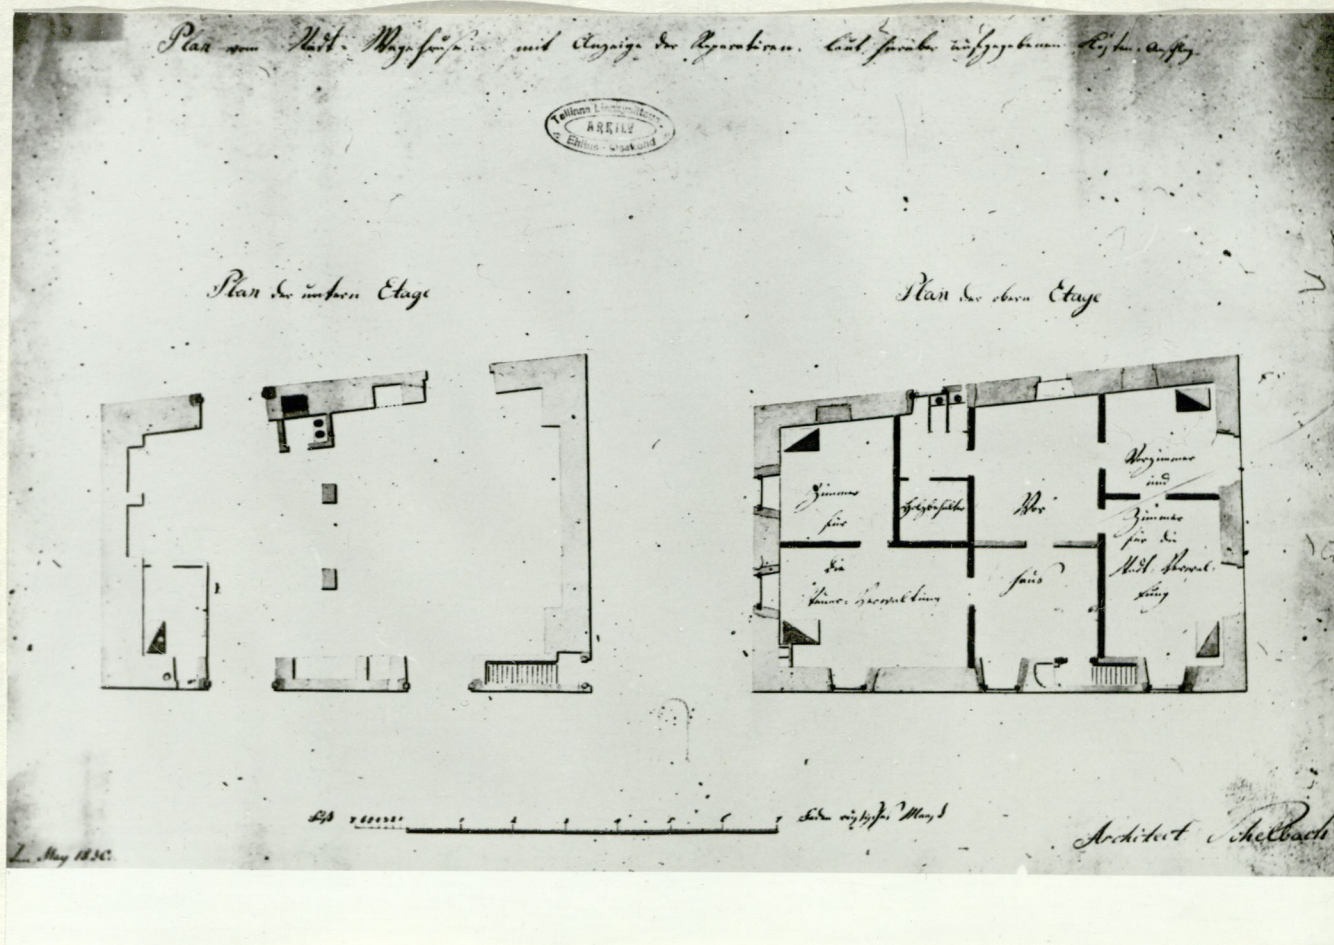 Plan vom Stadt-Wagehause mit Anzeige der Reparaturen, laut hierüber aufgegebenen Kosten-Anschlag.
Tallinna Linnavalitsus
ARHIIV
Ehitus-Osakond
Plan der untern Etage
Plan der obern Etage
Zimmer
für
die
Verwaltung
Holzbehälter
Vor
haus
Vorzimmer
und
Zimmer
für die
Stadt-Verwal-
tung
Fuß
Faden russisches Maaß
Im May
Architect Schelbach